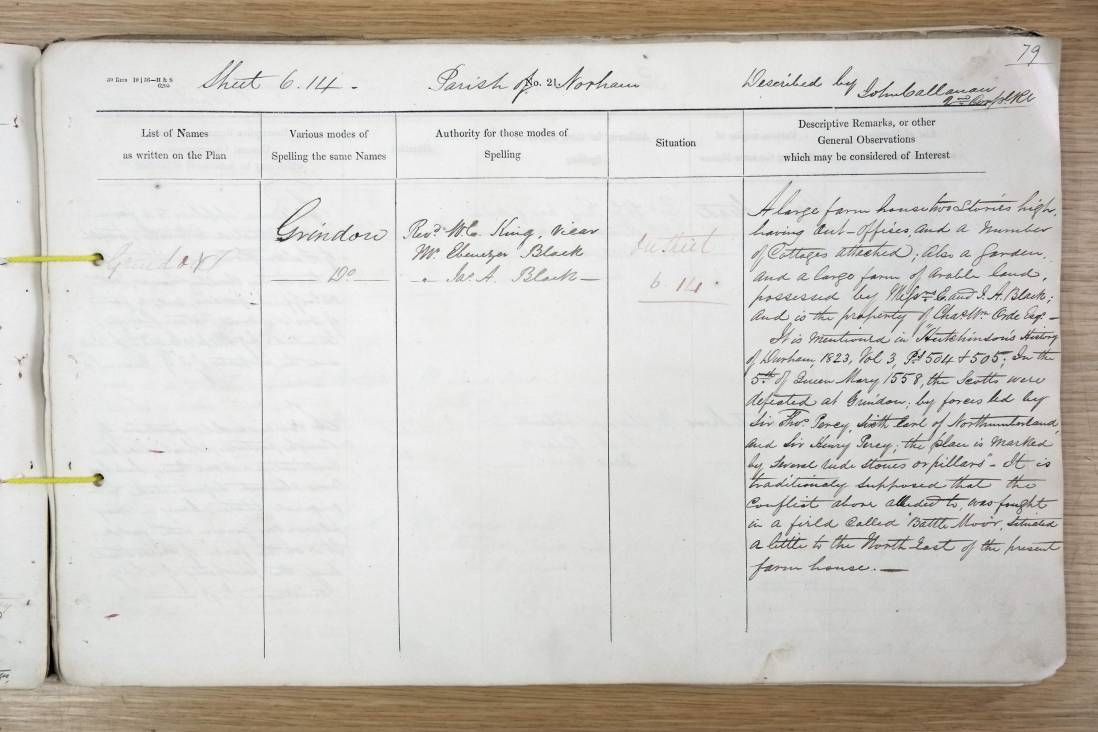 79
Sheet 6.14 - Parish of No. 21. Norham Described by John Callanan
List of Names
as written on the Plan
Various modes of
Spelling the same Names
Authority for those modes of
Spelling
Situation
Descriptive Remarks, or other
General Observations
which may be considered of Interest
Grindon
Grindon
Do
Revd. W.C. King, Vicar
Mr. Ebenezer Black
" Jas. A. Black
In trect
6.14
A large farm house two Stories high,
having Out-offices and a number
of Cottages attached; Also a Garden
and a large farm of arable land,
possessed by Messrs. E. and J. A. Black;
and is the property of Chas. Wm. Orde Esqr. -
It is mentioned in "Hutchinson's History
of Durham, 1823, Vol 3, Ps 504 & 505; In the
5th of Queen Mary 1558, the Scotts were
defeated at Grindon, by forces led by
Sir Thos. Percy, Sixth Earl of Northumberland,
and Sir Henry Percy; the plan is marked
by several rude stones or pillars" - It is
traditionaly supposed that the
Conflict above alluded to, was fought
in a field called "Battle Moor, situated
a little to the North East of the present
farm house. —